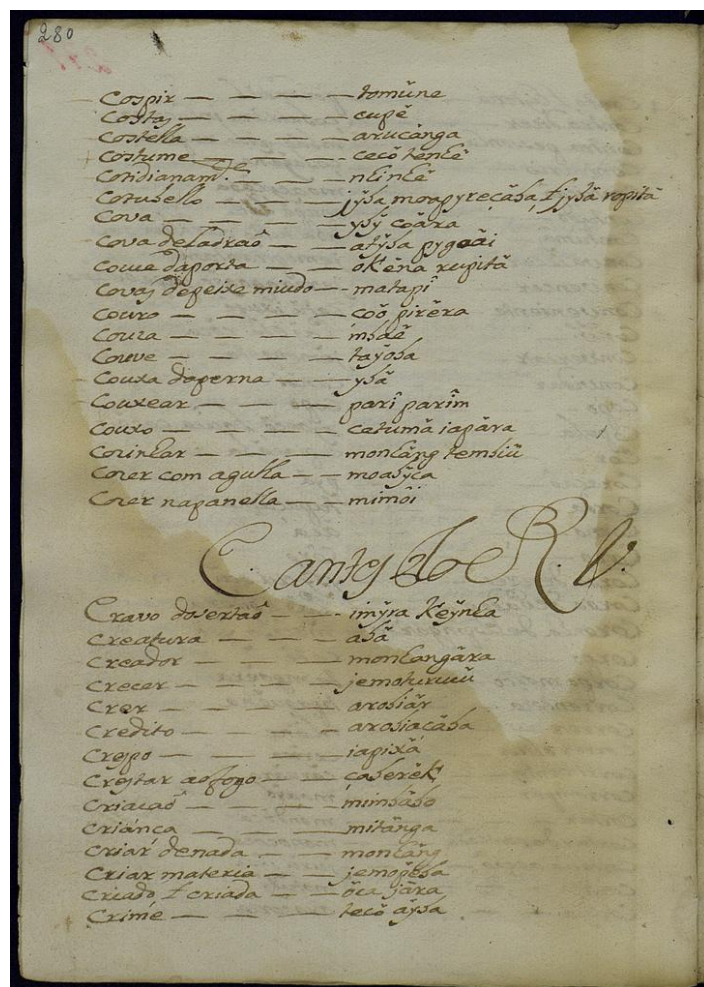 280
Cospir — — — — tomũne
Costas — — — — cupẽ
Costella — — — — arucãnga
Costume — — — cecõ tenhẽ
Cotidianamte. — — — nhinhẽ
Cotuvello — — — jyba, moapyrecãba, ł jybã ropitã
Cova — — — — ybÿ coãra
Cova de ladraõ — — atÿba pygoãi
Couce da porta — — oKẽna rupitã
Covas de peixe miudo — matapî
Couro — — — — coõ pirẽra
Couza — — — — mbaẽ
Couve — — — — tayõba
Couxa da perna — — ybã
Couxear — — — — parî parîm
Couxo — — — — catumã iapãra
Cozinhar — — — monhãng tembiũ
Cozer com agulha — — moabÿca
Cozer na panella — — mimõi
C. antes do R. V.
Cravo do sertaõ — — imÿra Keÿnha
Creatura — — — abã
Creador — — — monhangãra
Crecer — — — — jemoturucũ
Crer — — — — arobiãr
Credito — — — — arobiacãba
Crespo — — — — iapixã
Crestar ao fogo — — çaberẽk
Criacaõ — — — — mimbãbo
Criánca — — — mitãnga
Criar de nada — — monhãng
Criar materia — — jemopẽba
Criado ł criada — — õca jãra
Crime — — — — tecõ aÿba